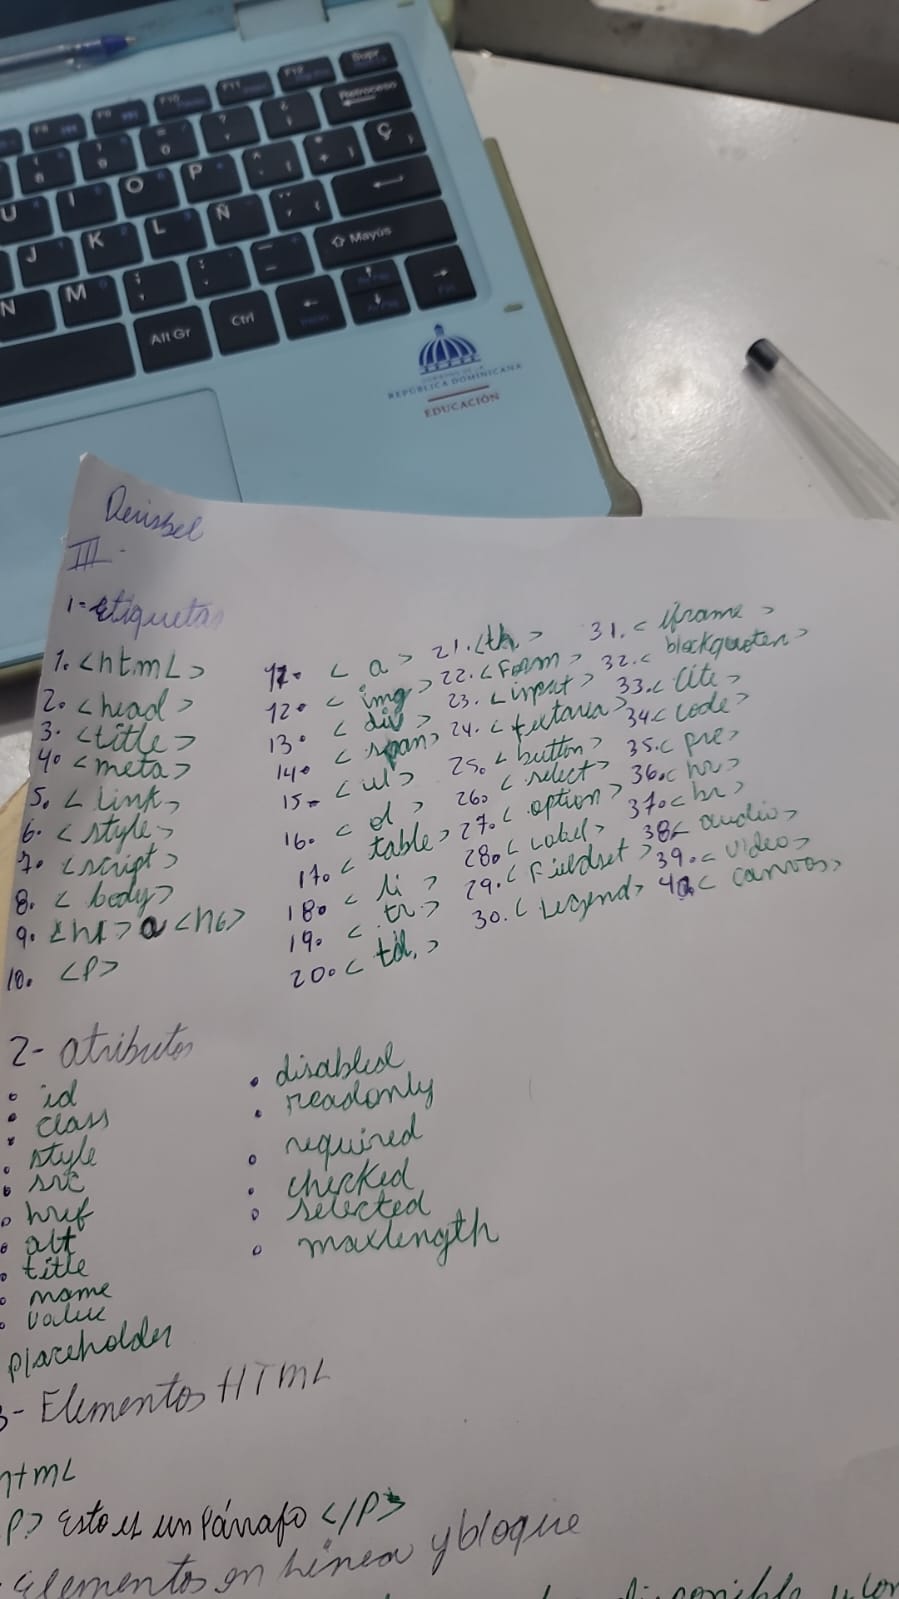 Supr
Retroceso
F9 F10 F11 F12
U I O P
J K L Ñ
Ç
Mayús
N M
Alt Gr
Ctrl
REPÚBLICA DOMINICANA
EDUCACIÓN
III.
1- etiquetas
1. <html>
2. <head>
3. <title>
4. <meta>
5. < link>
6. < style>
7. <script>
8. < body>
9. <h1> a <h6>
10. <P>
11. < a >
12. < img >
13. < div >
14. < span>
15. < ul>
16. < ol >
17. < table>
18. < li >
19. < tr >
20. < td, >
21. <th >
22. < Form >
23. < input >
24. < textarea>
25. < button>
26. < select>
27. < option>
28. < Label>
29. < Fieldset >
30. < Legend>
31. < iframe >
32. < blockquoten>
33. < Cite >
34. < code>
35. < pre>
36. < hr>
37. < br>
38. < audio>
39. < video>
40. < canvas>
2- atributos
• id
• class
• style
• src
• href
• alt
• title
• name
• value
placeholder
• disabled
• readonly
• required
• checked
• selected
• maxlength
3- Elementos HTML
HTML
P> Esto es un Párrafo </P>
Elementos en Línea y bloque
disponible y